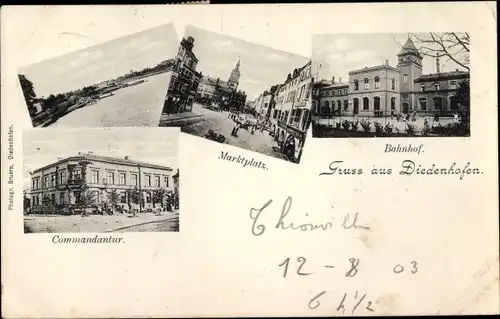 Photogr. Bruere, Diedenhofen.
Marktplatz.
Bahnhof.
Gruss aus Diedenhofen.
Commandantur.
Thionville
12-8 03
6 h 1/2